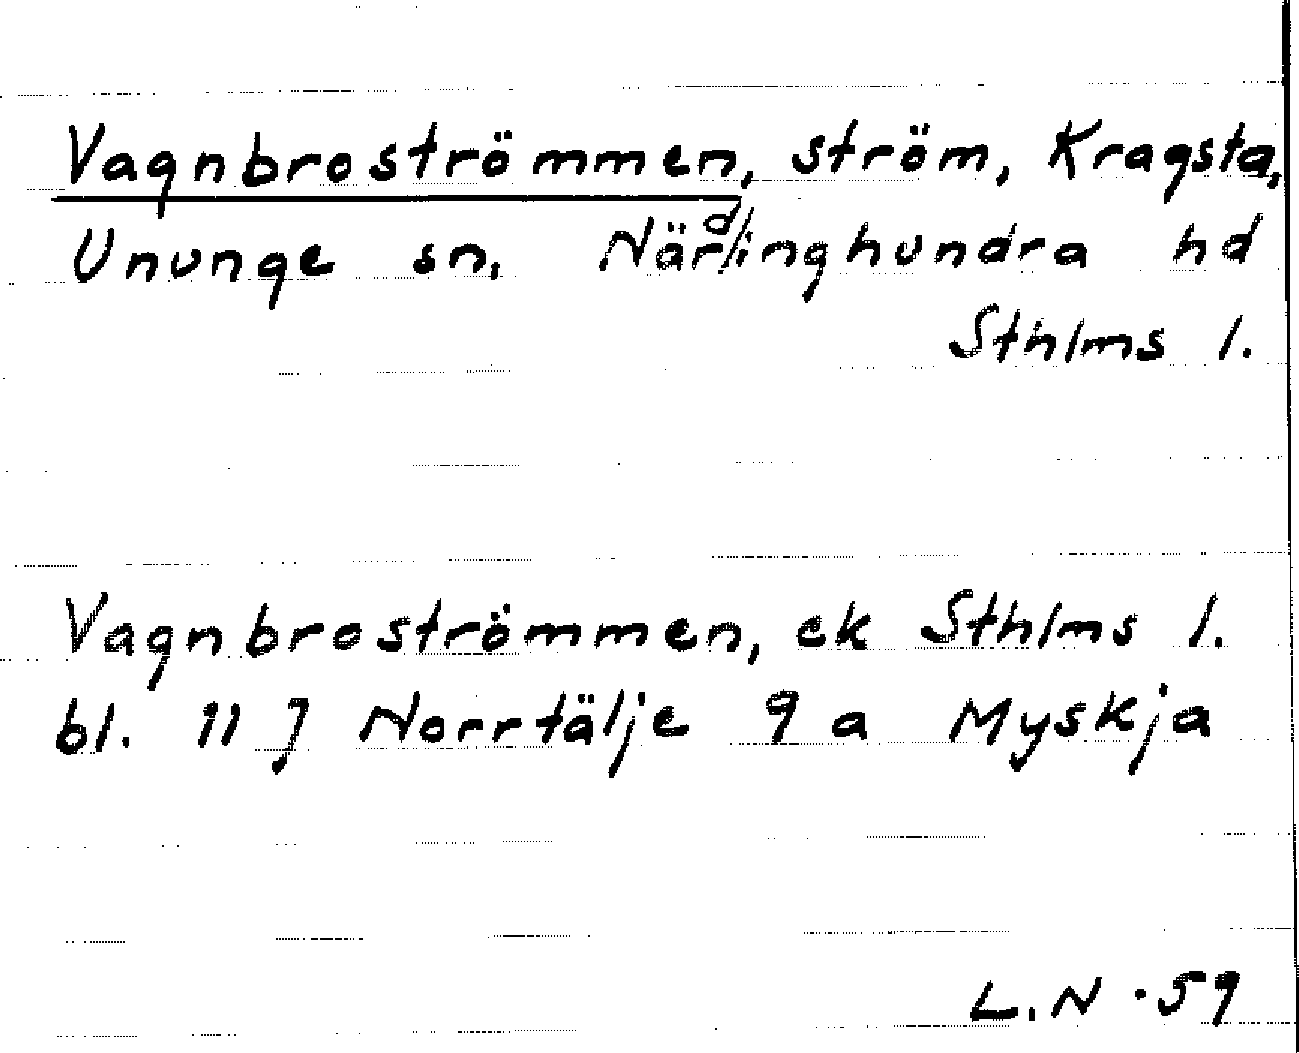 Vagnbroströmmen, ström, Kragsta,
Ununge sn. Närdinghundra hd
Sthlms l.
Vagnbroströmmen, ek Sthlms l.
bl. 11 J Norrtälje 9 a Myskja
L.N. 59